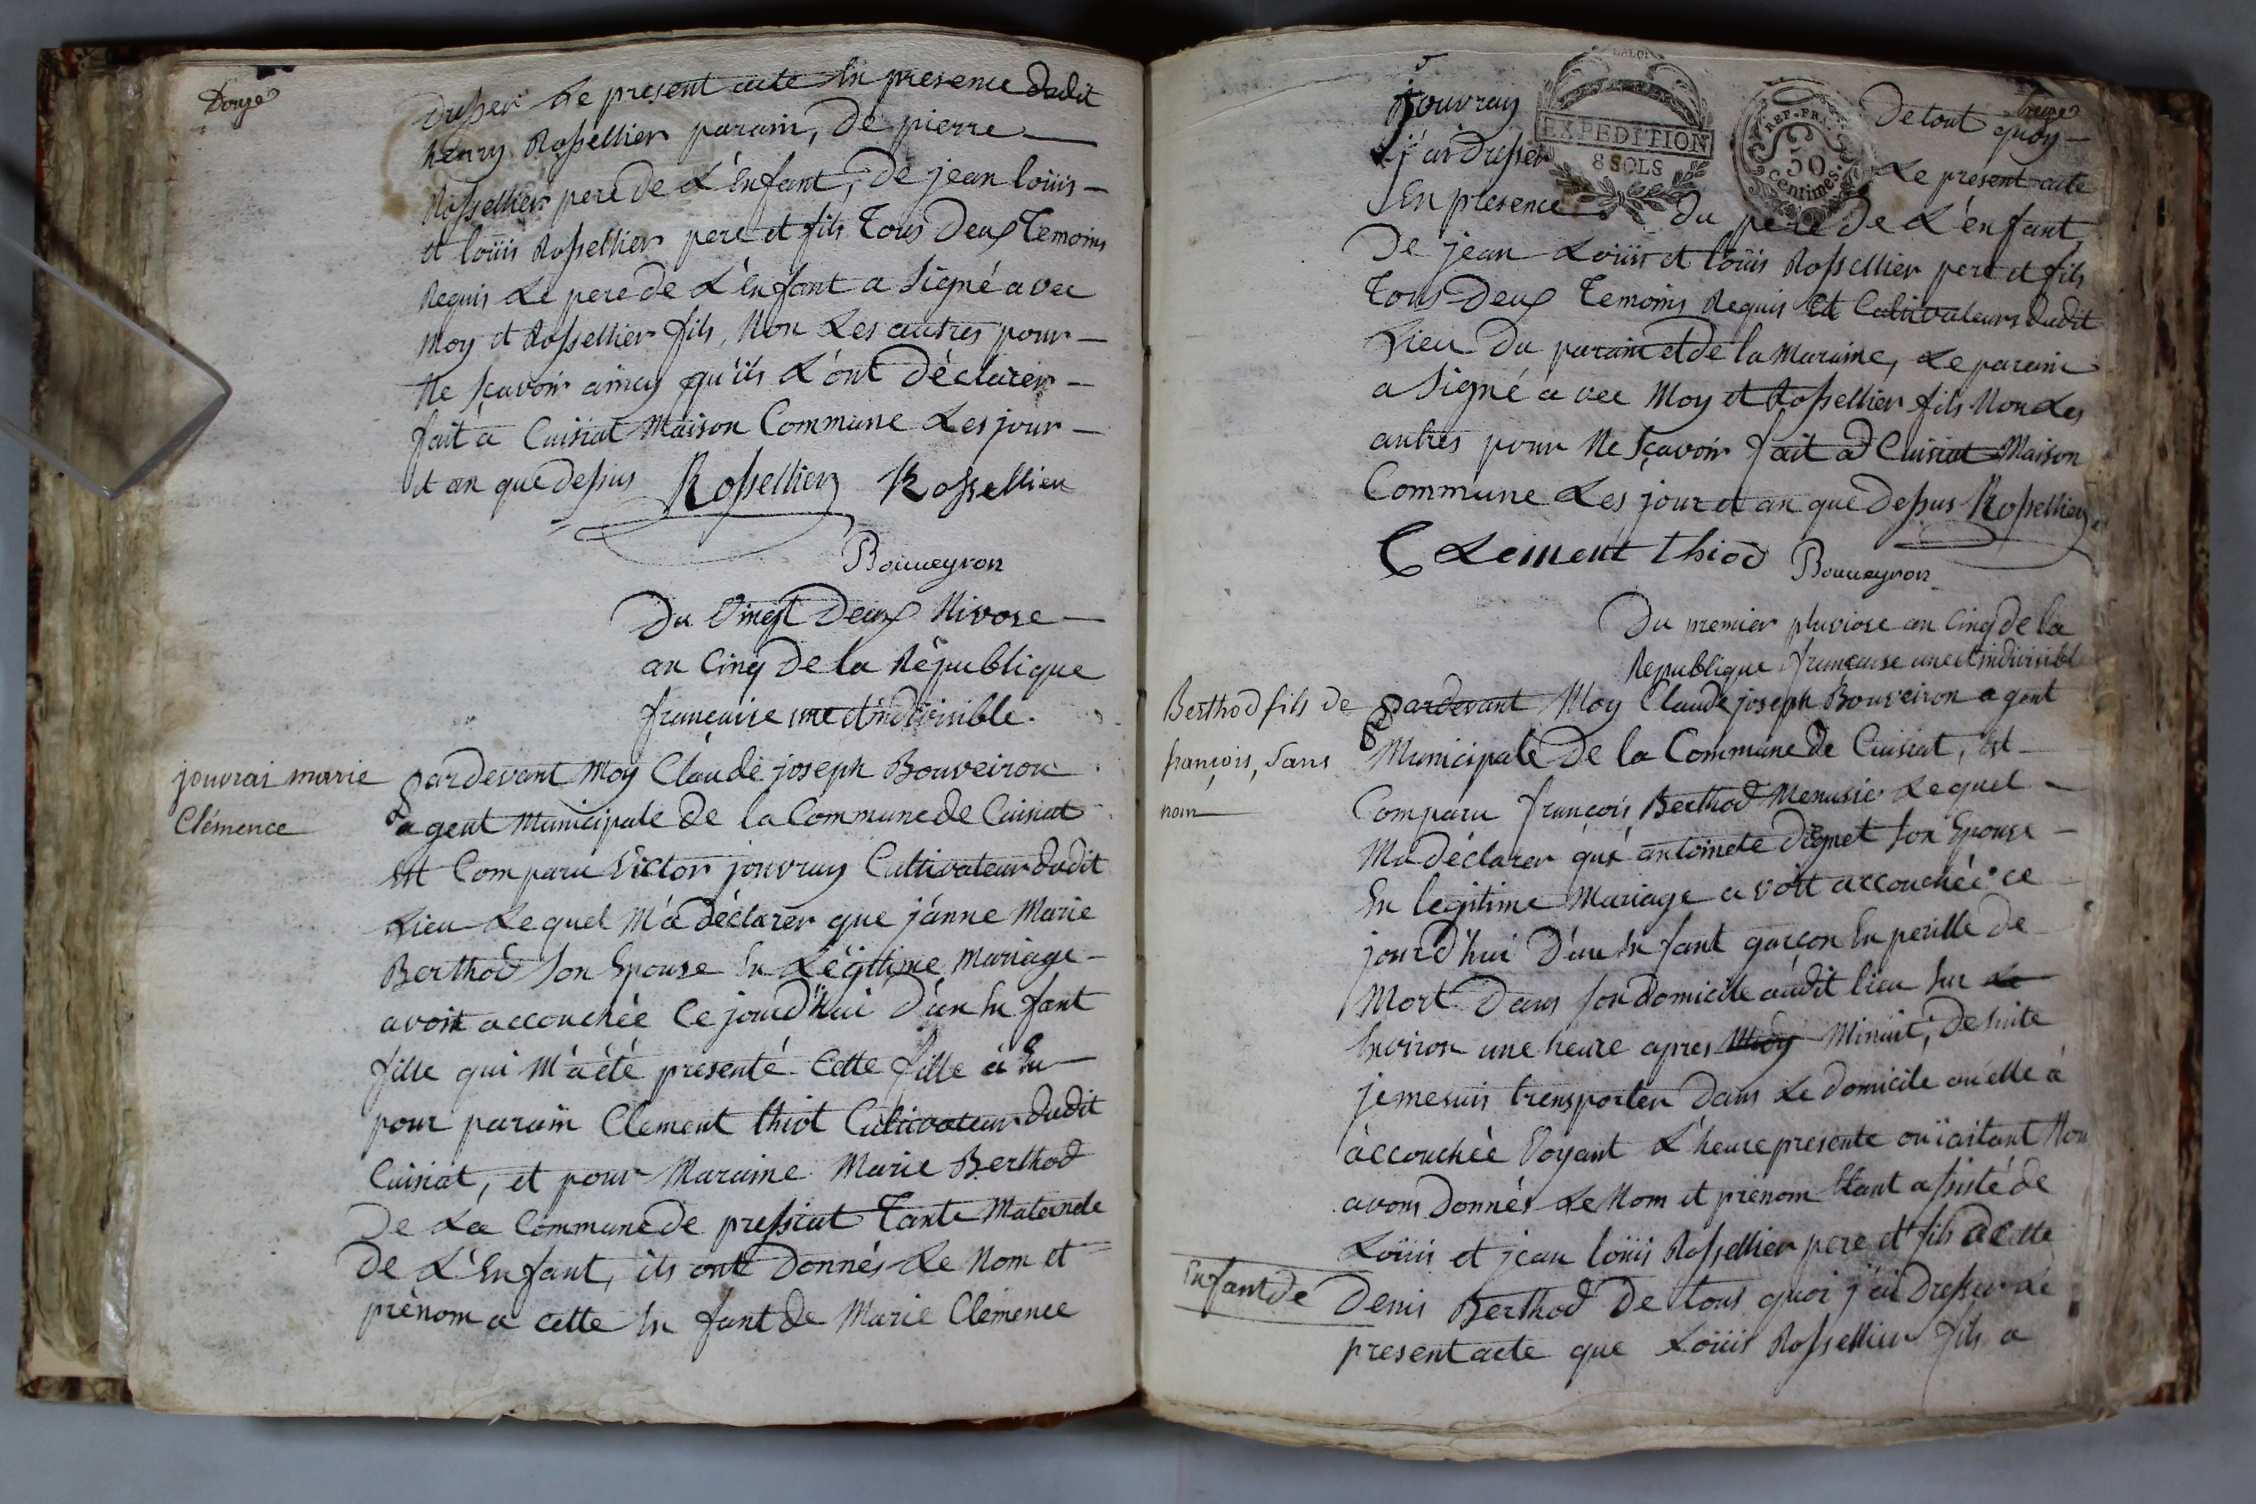 Douze
Dresser Le present acte En presence dudit
henry Rossellier parain, De pierre
Rossellier pere de L'Enfant, De jean loüis
et loüis Rossellier pere et fils Tous Deux Temoins
Requis Le pere de L'Enfant a Signé avec
Moy et Rossellier fils, Non Les autres pour
Ne sçavoir aincy qu'ils L'ont Déclarer
fait à Cuisiat Maison Commune Les jour
et an que Dessus Rossellier Rossellier
Bouveyron
Du Vingt Deux Nivose
an Cinq De la République
francaise une et indivisible.
jouvrai marie
Clémence
Pardevant Moy Claude joseph Bouveiron
agent Municipale De la Commune de Cuisiat
Est Comparu Victor jouvray Cultivateur dudit
Lieu Lequel M'a déclarer que jânne Marie
Berthod Son Epouse En Légitime Mariage
avoit accouchée Ce jourd'hui D'un En fant
fille qui M'a été presenté Cette fille à Eu
pour parain Clement thiot Cultivateur dudit
Cuisiat, et pour Maraine Marie Berthod
De La Commune de pressiat Tante Maternele
De L'Enfant, ils ont Donnés Le Nom et
prénom a cette En fant de Marie Clémence
Treize
Jouvray De tout quoy
LALOI
EXPEDITION
8 SOLS
REP. FRA.
50
centimes
j'ai Dresser Le present acte
En presence du pere De L'enfant
De jean Loüis et loüis Rossellier pere et fils
Tous Deux Temoins Requis Et Cultivateurs dudit
Lieu Du parain et de la Maraine, Le parain
a Signé avec Moy et Rossellier fils Non Les
autres pour Ne Sçavoir fait a Cuisiat Maison
Commune Les jour et an que Dessus Rossellier
Clement thiod Bouveyron
Du premier pluviose an Cinq de la
Republique francaise une et indivisible
Berthod fils de
françois, Sans
nom
Pardevant Moy Claude joseph Bouveiron agent
Municipale De la Commune de Cuisiat, Est
Comparu françois Berthod Menusié Lequel
Ma déclarer que antoinete Dignet Son Epouse
En legitime Mariage avoit accouchée ce
jourd'hui D'un En fant garçon En perille de
Mort Dans Son domicile audit lieu Sur Le
Environ une heure apres Midy Minuit, De Suite
je me suis trensporter Dans Le domicile ou elle à
àccouchée Voyant L'heure presente
avons Donnés Le Nom et prénom Etant assisté de
Loüis et jean loüis Rossellier pere et fils a cette
Enfant de Denis Berthod De tous quoi j'ai Dresser Le
present acte que Loüis Rossellier fils a